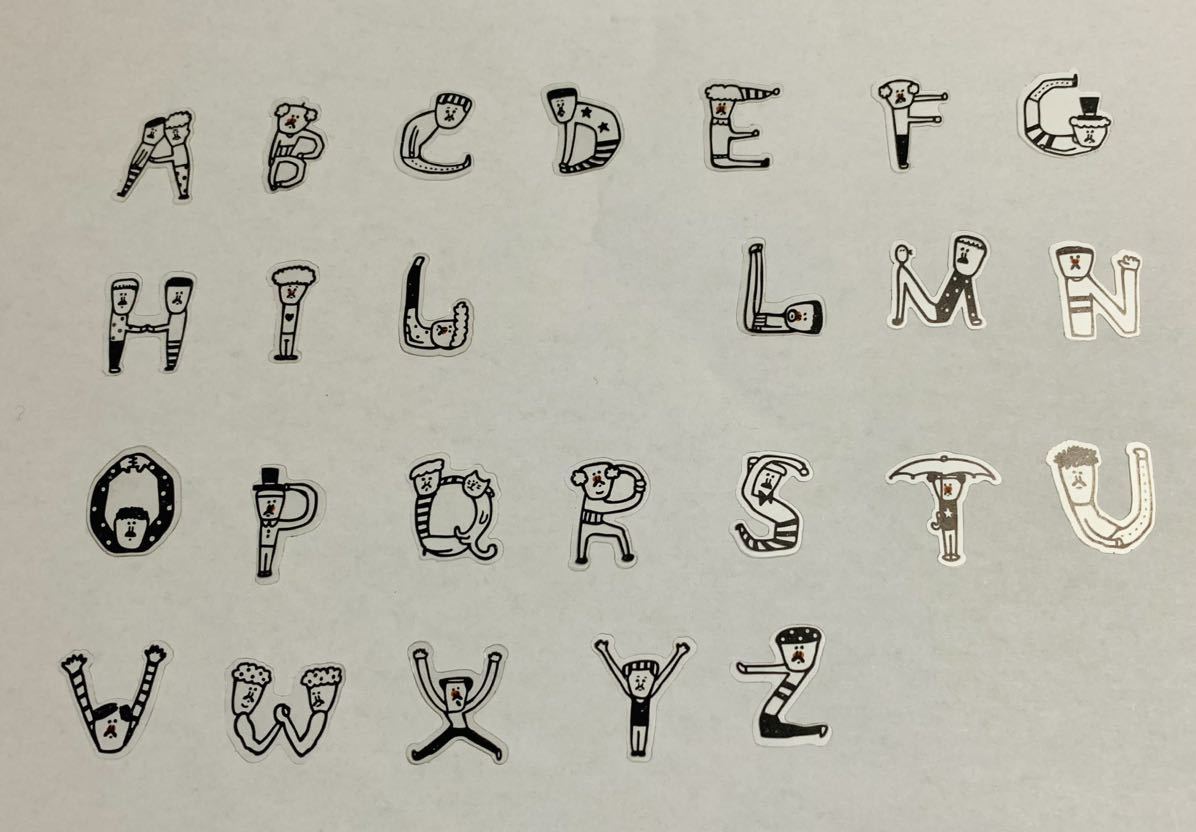 A B C D E F G
H I J L M N
O P Q R S T U
V W X Y Z